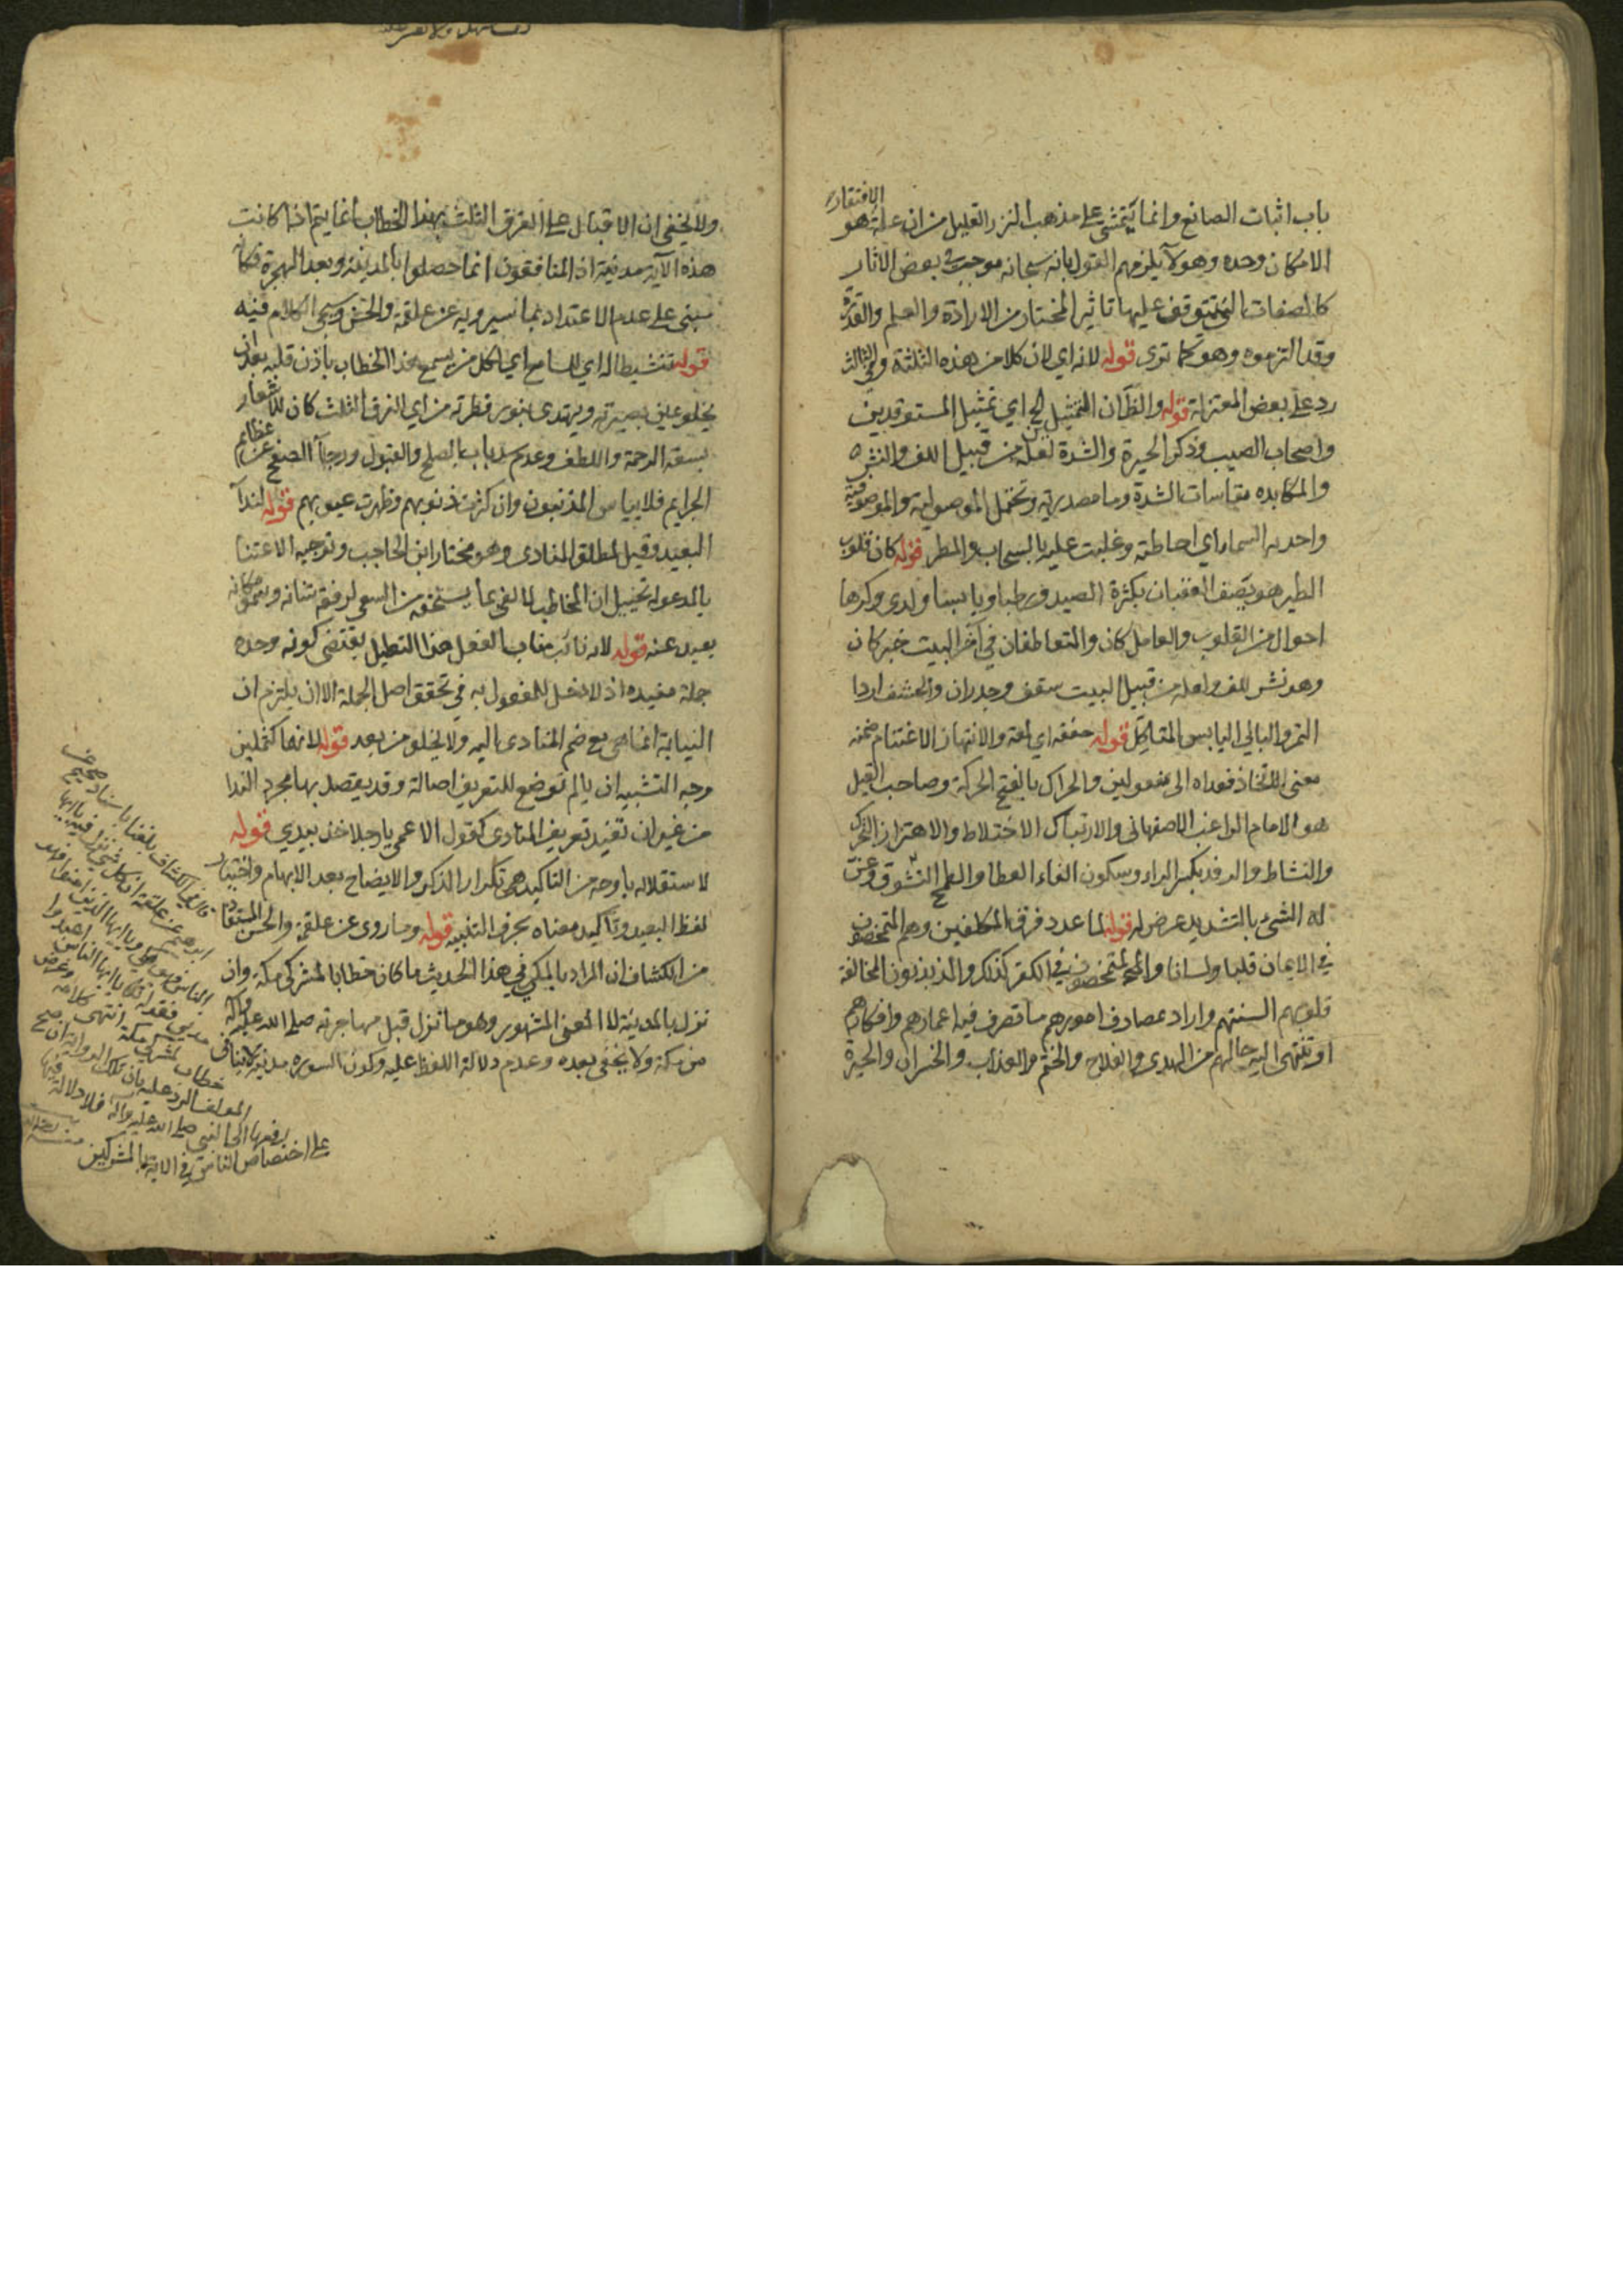 باب اثبات الصانع وانما يتمشى على مذهب النزر القليل من ان علة الافتقار هو
الامكان وحده وهولآ يلزمهم القول بانه سبحانه موجب في بعض الاثار
كالصفات التي تتوقف عليها تاثير المختار من الارادة والعلم والقدرة
وقد التزموه وهو كما ترى قوله لانه اي لان كلا من هذه الثلثة وفي الثالث
رد على بعض المعتزلة قوله والظان التمثيل الخ اي تمثيل المستوقدين
واصحاب الصيب وذكر الحيرة والشدة لعله من قبيل اللف والنشر
والمكابده مقاسات الشدة وما مصدرية وتحتمل الموصولية والموصوفية
واخذته السماء اي احاطته وغلبت عليه بالسحاب والمطر قوله كان قلوب
الطير هو يصف العقبان بكثرة الصيد ورطبا ويابسا ولدى وكرها
احوال من القلوب والعامل كان والمتعاطفان في آخر البيت خبر كان
وهو نشر للف ولعله من قبيل البيت سقف وجدران والحشف اردا
التمر والبالي اليابس المتاكل قوله حققه اي لعة والانتهاز الاغتنام ضمنه
معنى الاتخاذ فعداه الى مفعولين والحراك بالفتح الحركة وصاحب القيل
هو الامام الراغب الاصفهاني والارتباك الاختلاط والاهتزاز التحرك
والنشاط والرفد بكسر الراء وسكون الفاء العطا والطمح التشوق وعن
له الشئ بالتشديد عرض له قوله لما عدد فرق المكلفين وهم المتمحضون
في الايمان قلبا ولسانا والمتمحضون في الكفر كذلك والمذبذبون المخالفة
قلوبهم السنتهم واراد بمصارف امورهم ما تصرف فيه اعمارهم وافكارهم
او تنتهى اليه حالهم من الهدى والفلاح والختم والعذاب والخسران والحيرة
ولا يخفى ان الاقبال على الفرق الثلث بهذا الخطاب انما يتم اذا كانت
هذه الآية مدنية اذ المنافقون انما حصلوا بالمدينة وبعد الهجرة فكانه
مبنى على عدم الاعتداد بما سيرويه عن علقمة والحسن وسيجى الكلام فيه
قوله تنشيطا له اي للسامع اي لكل من يسمع هذا الخطاب باذن قلبه بعد ان
يخلو عين بصيرته ويهتدى بنور فطرته من اي الفرق الثلث كان للاشعار
بسعة الرحمة واللطف وعدم سد باب الصلح والقبول ورجاء الصفح عن عظايم
الجرايم فلا يياس المذنبون وان كثرت ذنوبهم وظهرت عيوبهم قوله لندآ
البعيد وقيل لمطلق المنادى وهو مختار ابن الحاجب وتوجيه الاعتنا
بالمدعو له تخييل ان المخاطب لا يفى بما يستحقه من السعى لرفعة شانه وسمو مكانه
بعيد عنه قوله لانه نائب مناب الفعل هذا التعليل يقتضى كونه وحده
جملة مفيده اذ لا دخل للمفعول به في تحقق اصل الجملة الا ان يلتزم ان
النيابة انما هى مع ضم المنادى اليه ولا يخلو من بعد قوله لانها كمثلين
وجه التشبيه ان يا لم توضع للتعريف اصالة وقد يقصد بها مجرد الندا
من غير ان تفيد تعريف المنادى كقول الاعمى يا رجلا خذ بيدي قوله
لاستقلاله باوجه من التاكيد هى تكرار الذكر والايضاح بعد الابهام واختيار
لفظ البعيد وتاكيد معناه بحرف التنبيه قوله وما روى عن علقمة والحسن المستفاد
من الكشاف ان المراد بالمكي في هذا الحديث ما كان خطابا لمشركى مكة وان
نزل بالمدينة لا المعنى المشهور وهو ما نزل قبل مهاجرته صلى الله عليه وآله
من مكة ولا يخفى بعده وعدم دلالة اللفظ عليه وكون السوره مدنية لا ينافى
قال في الكشاف بلغنا باسناد صحيح عن
ابرهيم عن علقمة ان كل شئ نزل فيه يا ايها
الناس فهو مكى ويا ايها الذين امنوا فهو
مدنى فقوله تعالى يا ايها الناس اعبدوا
خطاب لمشركي مكة انتهى كلامه وغرض
المولف الرد عليه بان تلك الرواية ان صح
رفعها الى النبي صلى الله عليه وآله فلا دلالة فيها
على اختصاص الناس في الاية بالمشركين